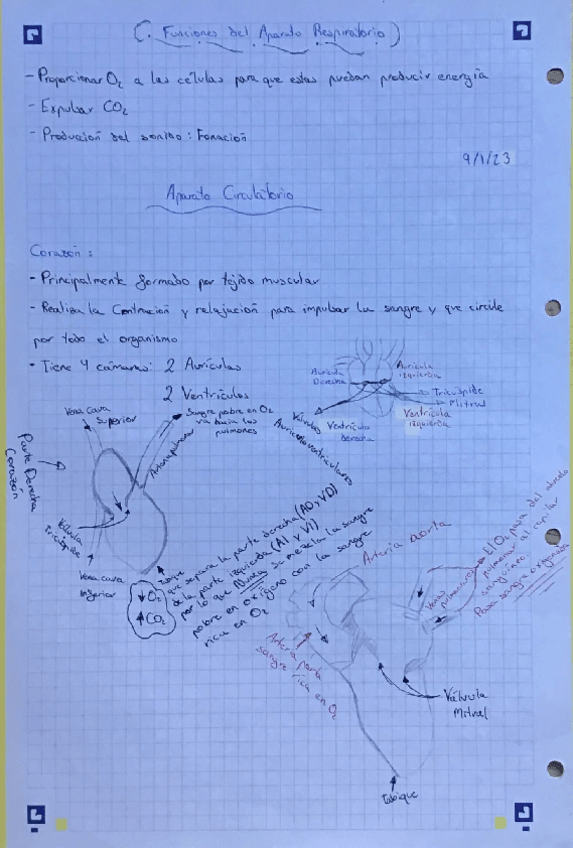 (. Funciones del Aparato Respiratorio )
- Proporcionar O₂ a las células para que estas puedan producir energía
- Expulsar CO₂
- Producción del sonido: Fonación
9/1/23
Aparato Circulatorio
Corazón:
- Principalmente formado por tejido muscular
- Realiza la Contracción y relajación para impulsar la sangre y que circule
por todo el organismo
- Tiene 4 cámaras: 2 Aurículas
2 Ventrículos
Aurícula
Derecha
Aurícula
izquierda
Tricúspide
Mitral
Válvulas
Auriculoventriculares
Ventrículo
derecha
Ventrícula
izquierda
Vena cava
Superior
Sangre pobre en O₂
va hacia los
pulmones
Arteria pulmonar
Parte Derecha
Corazón
Válvula
Tricúspide
Vena cava
Inferior
↓ O₂
↑ CO₂
Tabique
que separa la parte derecha (AD y VD)
de la parte izquierda (AI y VI)
por lo que Nunca se mezcla la sangre
pobre en oxígeno con la sangre
rica en O₂
Arteria aorta
Venas
pulmonares
El O₂ pasa del alveolo
pulmonar al capilar
sanguíneo.
Pasa sangre oxigenada
Arteria porta
sangre rica en O₂
Válvula
Mitral
Tabique